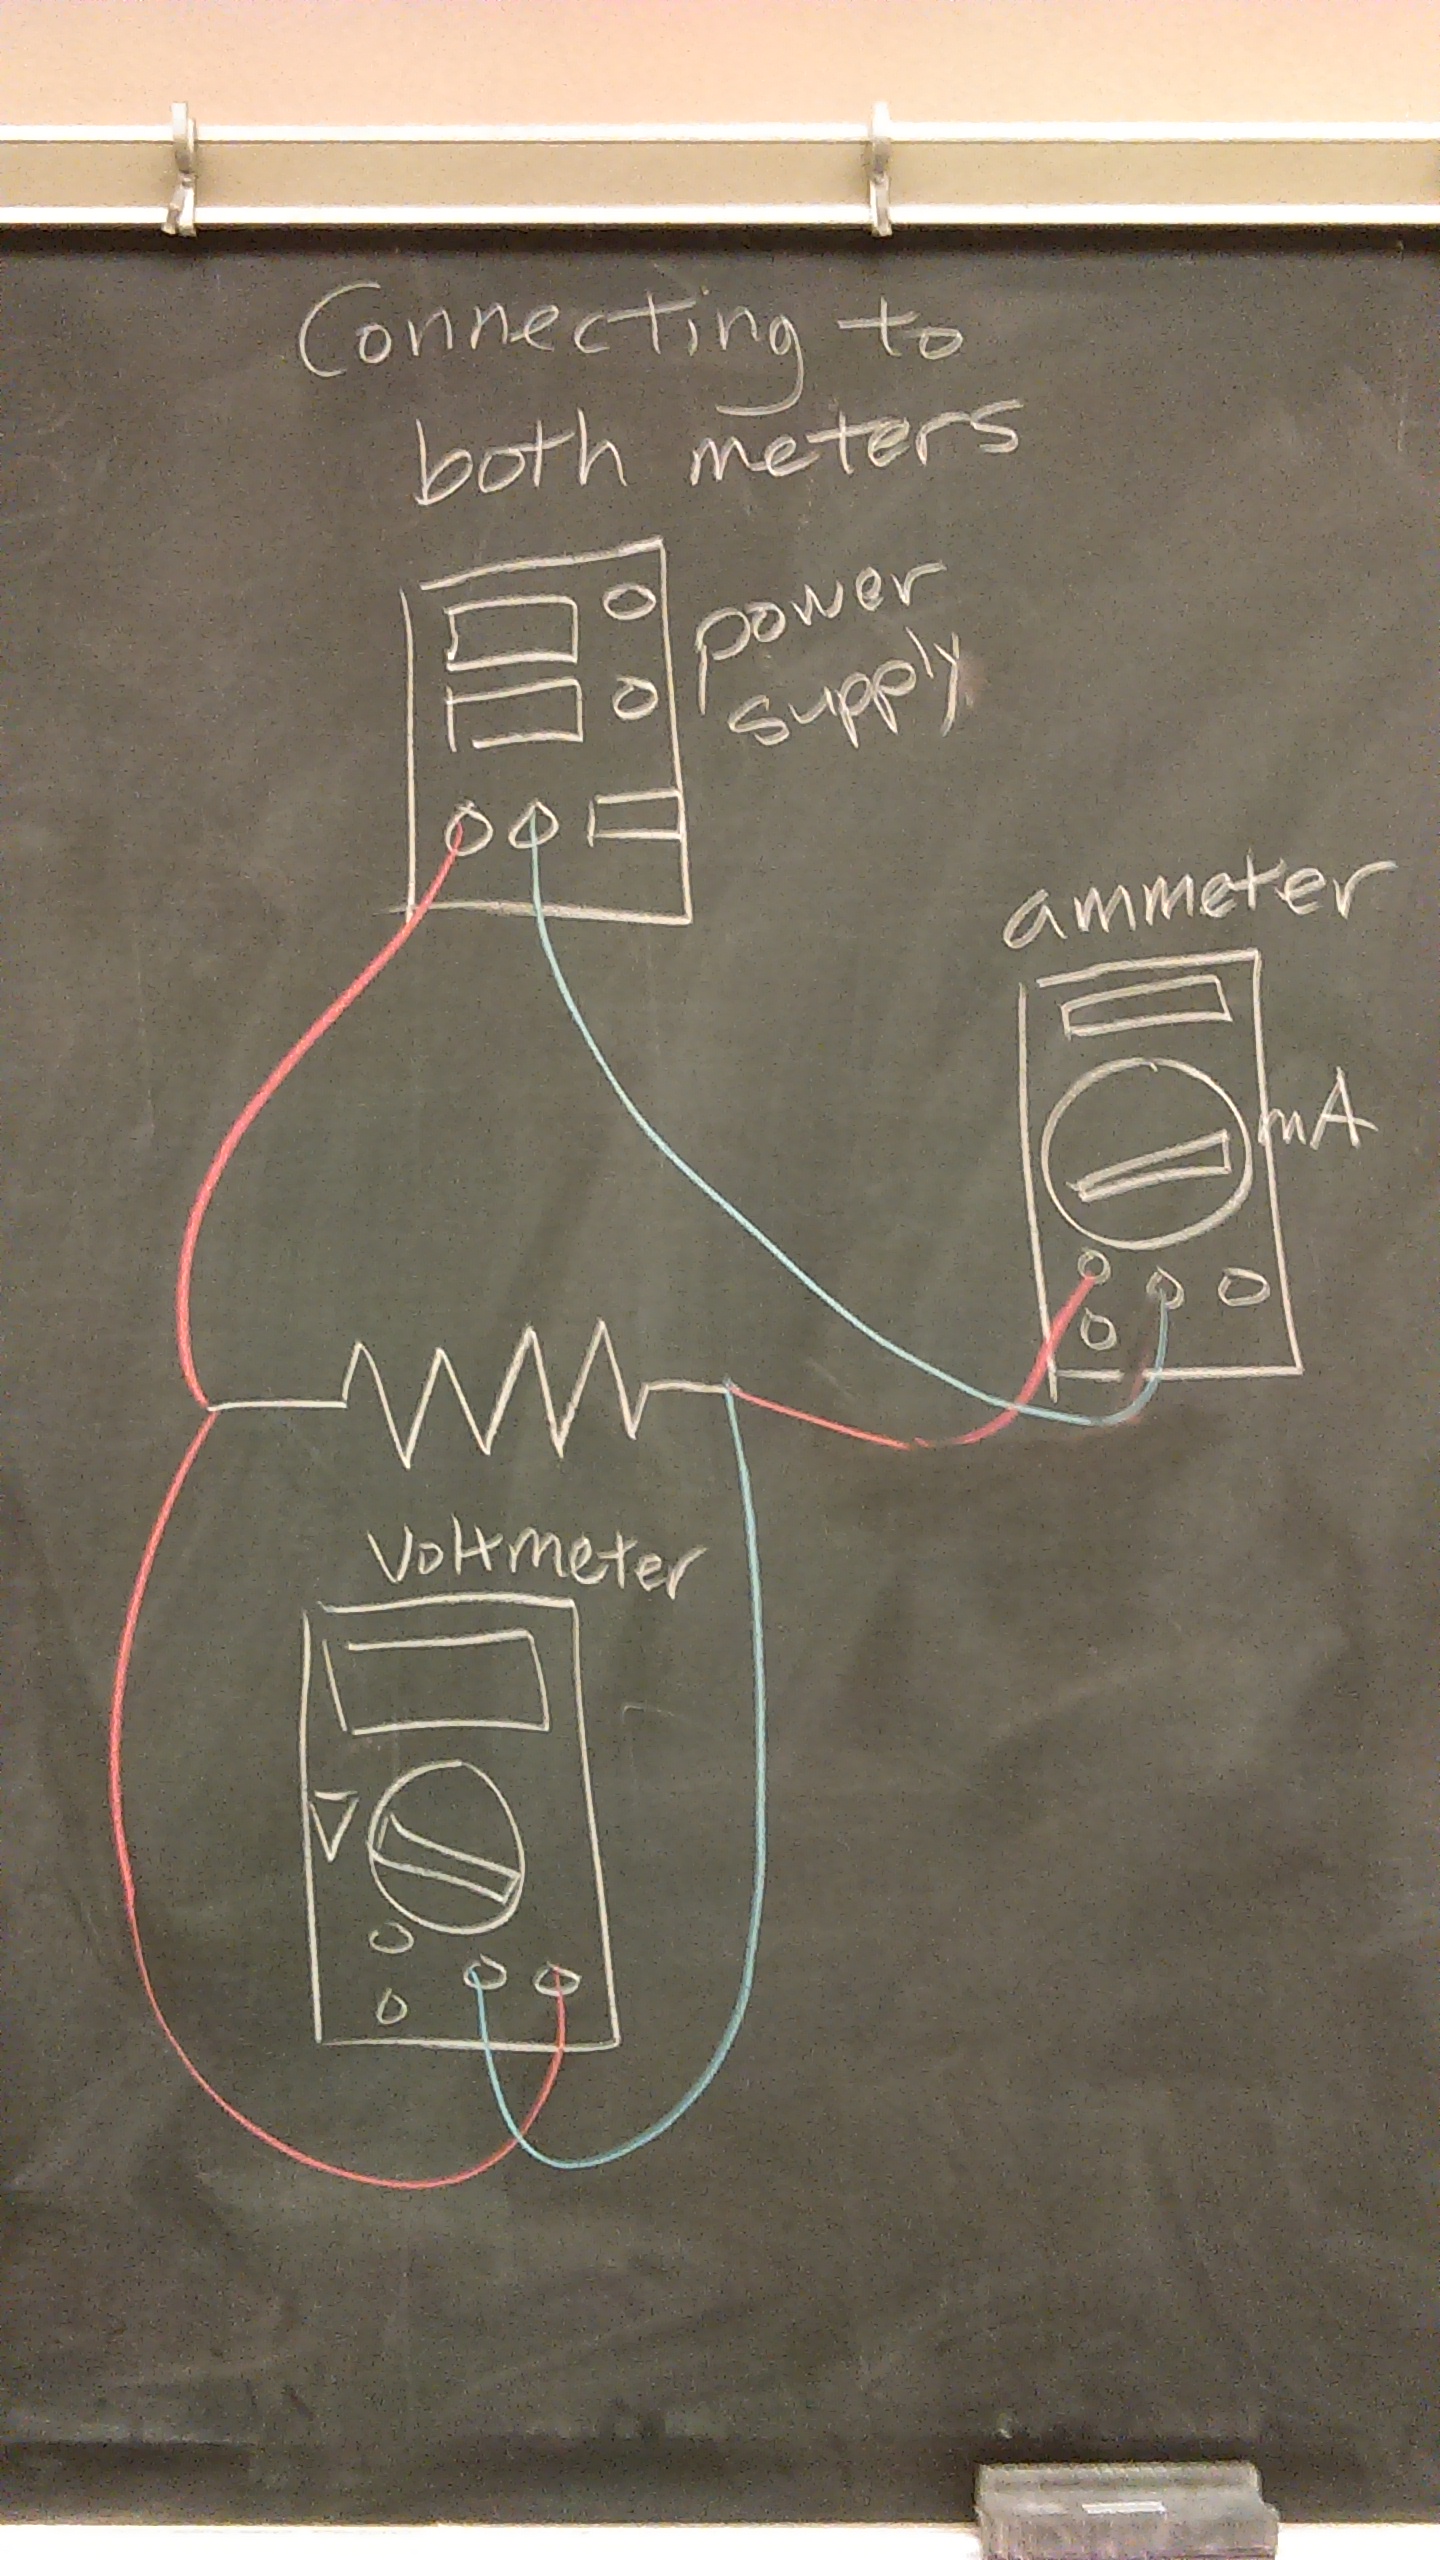 Connecting to
both meters
power
supply
ammeter
mA
Voltmeter
V